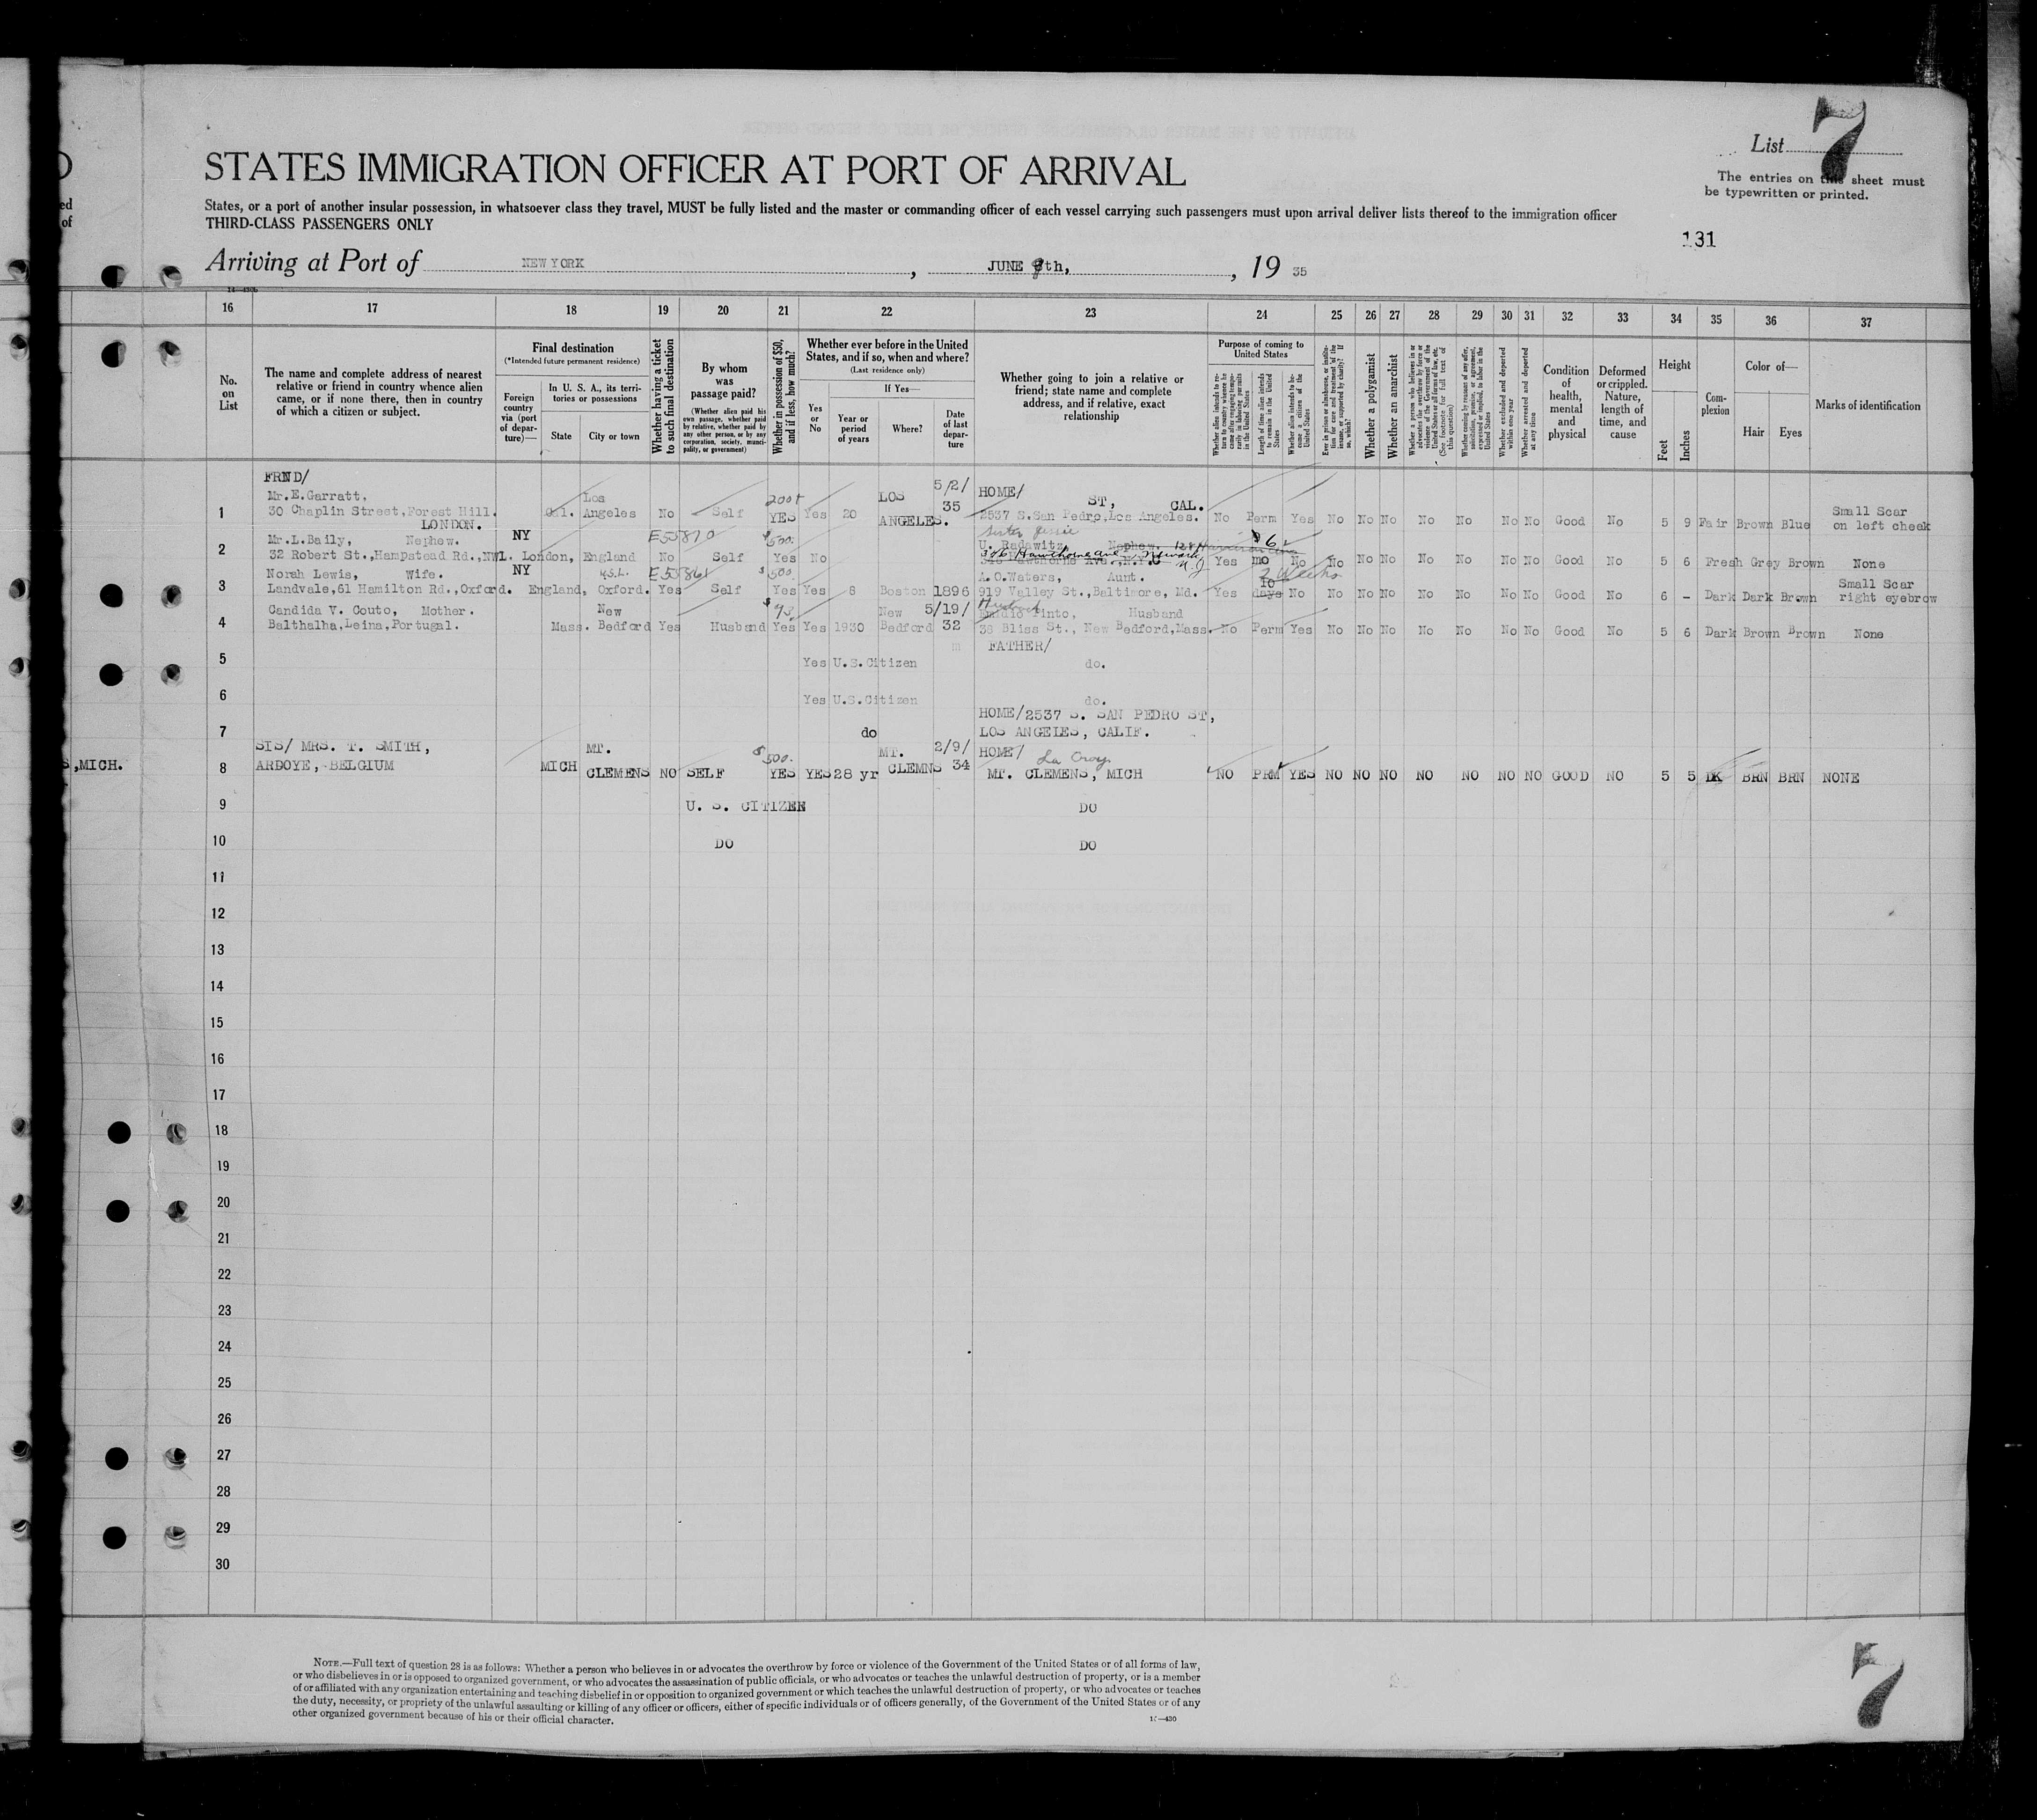 List 7
The entries on this sheet must
be typewritten or printed.
STATES IMMIGRATION OFFICER AT PORT OF ARRIVAL
States, or a port of another insular possession, in whatsoever class they travel, MUST be fully listed and the master or commanding officer of each vessel carrying such passengers must upon arrival deliver lists thereof to the immigration officer
THIRD-CLASS PASSENGERS ONLY
131
Arriving at Port of NEW YORK , JUNE th, , 19 35
16 17 18 19 20 21 22 23 24 25 26 27 28 29 30 31 32 33 34 35 36 37
No. on List
The name and complete address of nearest relative or friend in country whence alien came, or if none there, then in country of which a citizen or subject.
Final destination
(*Intended future permanent residence)
Foreign country via (port of departure)—
In U. S. A., its territories or possessions
State
City or town
Whether having a ticket to such final destination
By whom was passage paid?
(Whether alien paid his own passage, whether paid by relative, whether paid by any other person, or by any corporation, society, municipality, or government)
Whether in possession of $50, and if less, how much?
Whether ever before in the United States, and if so, when and where?
(Last residence only)
Yes or No
If Yes—
Year or period of years
Where?
Date of last departure
Whether going to join a relative or friend; state name and complete address, and if relative, exact relationship
Purpose of coming to United States
Length of time alien intends to remain in the United States
Whether alien intends to become a citizen of the United States
Whether a polygamist
Whether an anarchist
Whether arrested and deported at any time
Condition of health, mental and physical
Deformed or crippled. Nature, length of time, and cause
Height
Feet
Inches
Complexion
Color of—
Hair
Eyes
Marks of identification
FRND/
Mr.E.Garratt, Los LOS 5/2/ HOME/ ST, CAL. Small Scar
1 30 Chaplin Street,Forest Hill. Angeles No Self YES Yes 20 ANGELES. 35 2537 S.San Pedro,Los Angeles. No Perm Yes No No No No No No No Good No 5 9 Fair Brown Blue on left cheek
LONDON.
Mr.L.Baily, Nephew. NY E55870 $500. Sister Jessie
U. Radawitz, Nephew. 6
2 32 Robert St.,Hampstead Rd.,NW1. London, England No Self Yes No 346 Hawthorne Ave. Newark N.J Yes mo No No No No No No No No Good No 5 6 Fresh Grey Brown None
Norah Lewis, Wife. NY E55861 $500. A.O.Waters, Aunt. 2 Weeks Small Scar
3 Landvale,61 Hamilton Rd.,Oxford. England, Oxford. Yes Self Yes Yes 8 Boston 1896 919 Valley St.,Baltimore, Md. Yes 10 days No No No No No No No No Good No 6 - Dark Dark Brown right eyebrow
Candida V. Couto, Mother. New New 5/19/ Husband
4 Balthalha,Leina,Portugal. Mass. Bedford Yes Husband Yes Yes 1930 Bedford 32 38 Bliss St., New Bedford,Mass. No Perm Yes No No No No No No No Good No 5 6 Dark Brown Brown None
FATHER/
5 Yes U.S.Citizen do.
6 Yes U.S.Citizen do.
HOME/2537 S. SAN PEDRO ST,
7 do LOS ANGELES, CALIF.
SIS/ MRS. T. SMITH, MT. $500. MT. 2/9/ HOME/ La Croy
,MICH. 8 ARDOYE, BELGIUM MICH CLEMENS NO SELF YES YES 28 yr CLEMNS 34 MT. CLEMENS, MICH NO PRM YES NO NO NO NO NO NO NO GOOD NO 5 5 DK BRN BRN NONE
9 U. S. CITIZEN DO
10 DO DO
11
12
13
14
15
16
17
18
19
20
21
22
23
24
25
26
27
28
29
30
NOTE.—Full text of question 28 is as follows: Whether a person who believes in or advocates the overthrow by force or violence of the Government of the United States or of all forms of law,
or who disbelieves in or is opposed to organized government, or who advocates the assassination of public officials, or who advocates or teaches the unlawful destruction of property, or is a member
of or affiliated with any organization entertaining and teaching disbelief in or opposition to organized government or which teaches the unlawful destruction of property, or who advocates or teaches
the duty, necessity, or propriety of the unlawful assaulting or killing of any officer or officers, either of specific individuals or of officers generally, of the Government of the United States or of any
other organized government because of his or their official character.
7